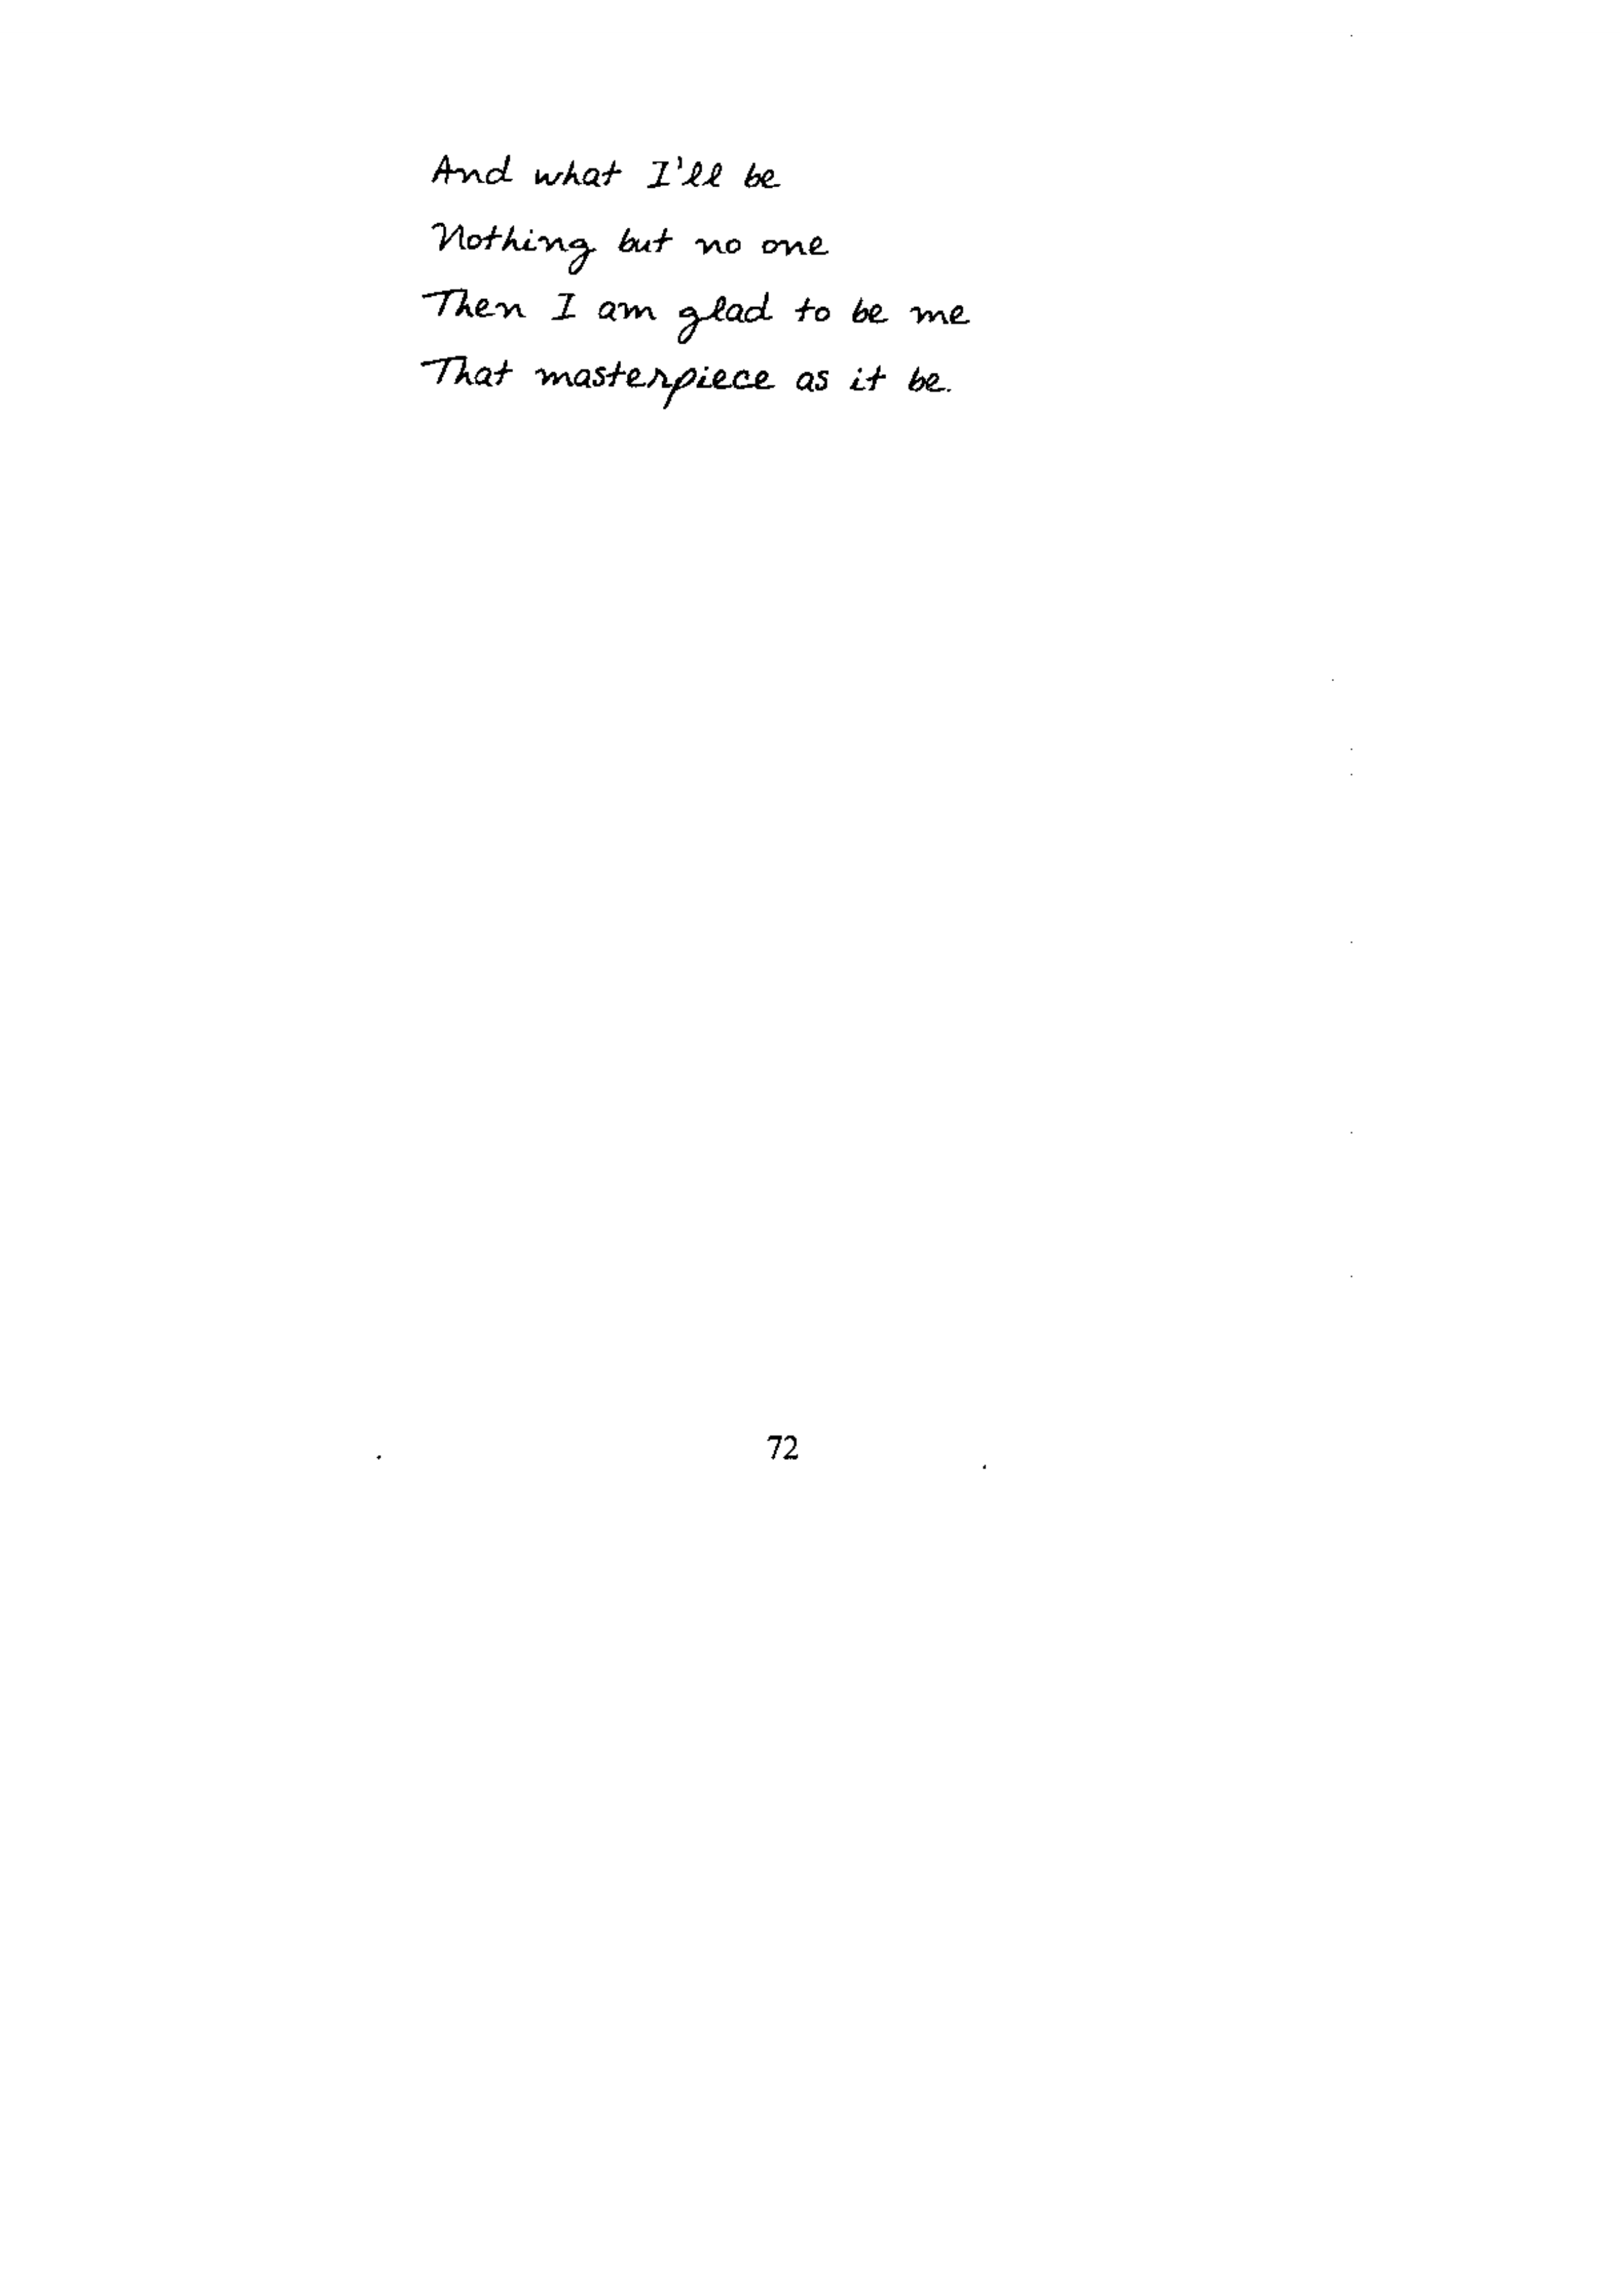 And what I'll be
Nothing but no one
Then I am glad to be me
That masterpiece as it be.
72